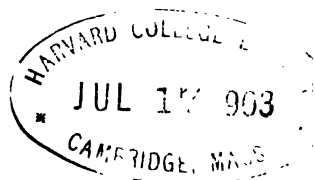 HARVARD COLLEGE
JUL 1
CAMBRIDGE, MASS